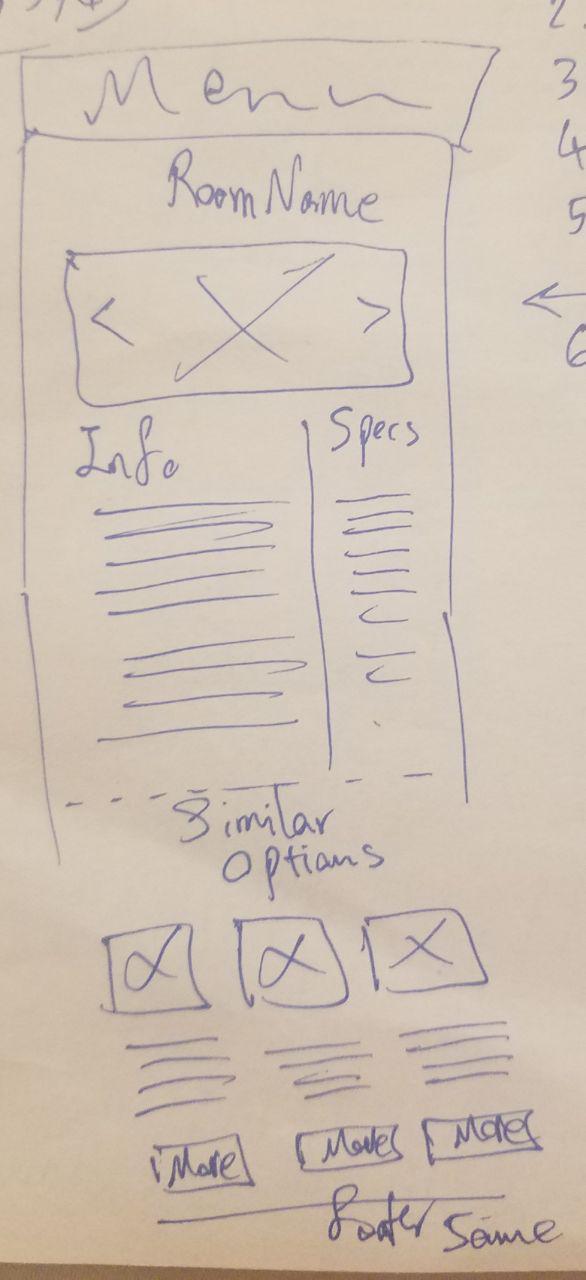 2.
3
4
5
6
Menu
Room Name
< >
Info
Specs
Similar
Options
More More More
footer same